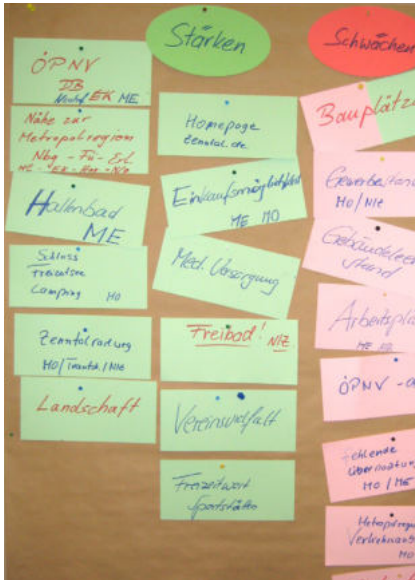 Stärken
Schwächen
ÖPNV
DB
EK ME
Nähe zur
Metropolregion
Nbg - Fü - Erl
Hallenbad
ME
Schloss
Freizeitsee
Camping MO
Zenntalradweg
HO/Trautsk./NIE
Landschaft
Homepage
Zenntal.de
Einkaufsmöglichkeit
ME MO
Med. Versorgung
Freibad!
Vereinsvielfalt
Freizeitwert
Sportstätten
Bauplätz
Gewerbestand
HO/NIE
Gebäudelee
stand
Arbeitsplä
ME
ÖPNV -
Fehlende
Übernachtun
HO / ME
Metropolregion
Verkehrs
MO